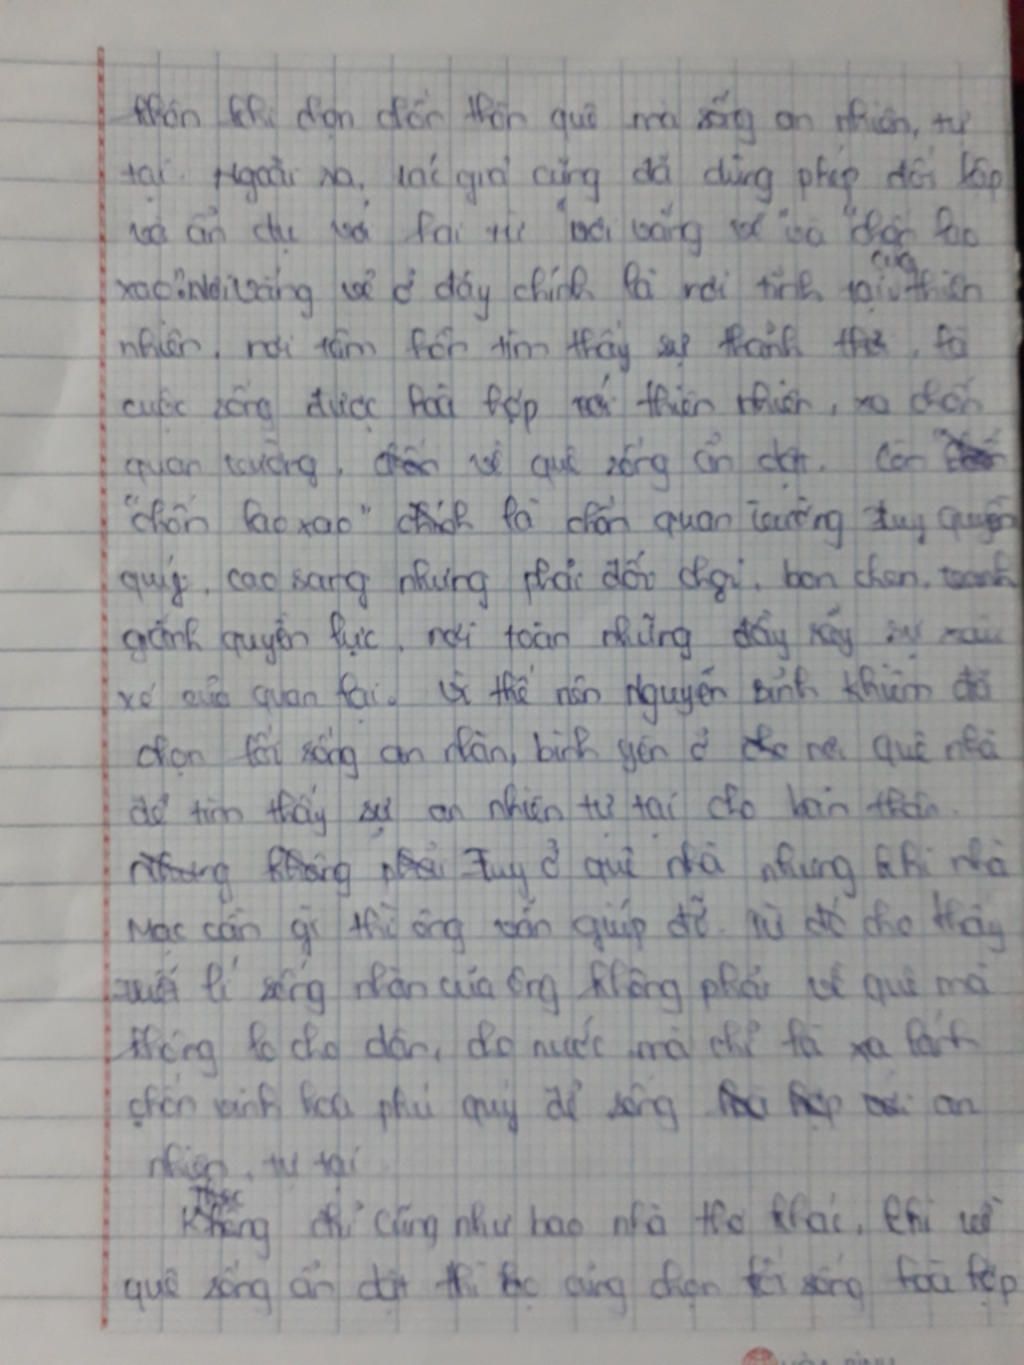 khôn khi chọn chốn thôn quê mà sống an nhiên, tự
tại. Ngoài ra, tác giả cũng đã dùng phép đối lập
và ẩn dụ với hai từ "nơi vắng vẻ" và "chốn lao
xao". Nơi vắng vẻ ở đây chính là nơi tĩnh tại của thiên
nhiên, nơi tâm hồn tìm thấy sự thảnh thơi, là
cuộc sống được hoà hợp với thiên nhiên, xa chốn
quan trường, về quê sống ẩn dật. Còn
"chốn lao xao" chính là chốn quan trường tuy quyền
quý, cao sang nhưng phải đối chọi, bon chen,
giành quyền lực, nơi toàn những đầy rẫy sự
xé của quan lại. Vì thế nên Nguyễn Bỉnh Khiêm đã
chọn lối sống an nhàn, bình yên ở nơi quê nhà
để tìm thấy sự an nhiên tự tại cho bản thân.
Tuy ở quê nhà nhưng khi nhà
Mạc cần gì thì ông vẫn giúp đỡ. Từ đó cho thấy
lí sống nhàn của ông không phải về quê mà
không lo cho dân, cho nước mà chỉ là xa lánh
chốn vinh hoa phú quý để sống an
nhiên, tự tại
Không chỉ cũng như bao nhà thơ khác, khi về
quê sống ẩn dật thì học cũng chọn lối sống hoà hợp